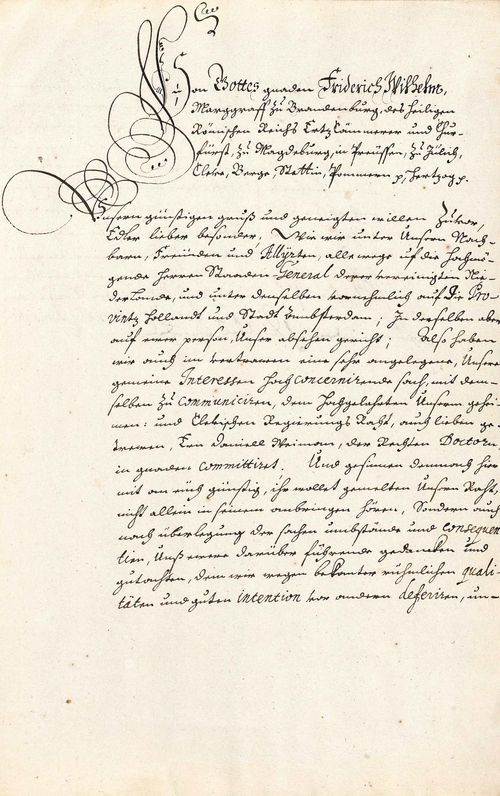 Von Gottes gnaden Friderich Wilhelm,
Marggraff zu Brandenburg, des Heiligen
Römischen Reichs Ertzkämmerer und Chur-
fürst, zu Magdeburg, in Preüssen, zu Jülich,
Cleve, Berge, Stettin, Pommern p, Hertzog p.
Unsern günstigen gruß und geneigten willen zuvor,
Edler lieber besonder, Wie wir unter Unsern Nach-
barn, Freünden und Allyrten, allewege uf die Hochmö-
gende Herren Staaden General derer vereinigten Nie-
derlande, und unter denselben vornehmlich auf die Pro-
vintz Hollandt und Stadt Ambsterdam; In derselben aber
auf ewer person, Unser absehen gericht; Also haben
wir auch im vertrawen eine sehr angelegene, Unsere
gemeine Interessen hoch concernirende sach, mit dem-
selben zu communiciren, dem Hochgelahrten Unserm gehei-
men: und Clevischen Regierungs Raht, auch lieben ge-
trewen, Ern Daniell Weiman, der Rechten Doctorn,
in gnaden committiret. Und gesinnen demnach hier
mit an eüch günstig, ihr wollet gemelten Unsern Raht,
nicht allein in seinem anbringen hören, Sondern auch
nach überlegung der sachen umbstände und consequen-
tien, Unß ewere darüber führende gedancken und
gutachten, dem wir wegen bekanter rühmlichen quali-
täten und guten intention vor andern deferiren, un-